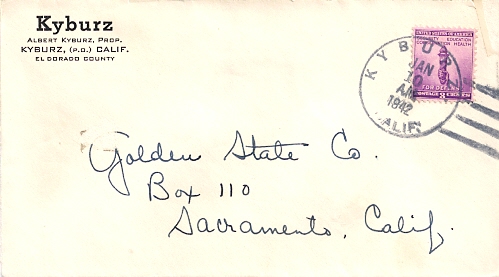 Kyburz
ALBERT KYBURZ, PROP.
KYBURZ, (P.O.) CALIF.
EL DORADO COUNTY
UNITED STATES OF AMERICA
EDUCATION
HEALTH
FOR DEFENSE
POSTAGE 3 CENTS
KYBURZ
JAN
10
AM
1942
CALIF.
Golden State Co.
Box 110
Sacramento, Calif.